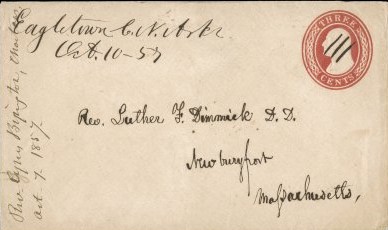 Eagletown C. N. Arks
Oct. 10 - 57
THREE
CENTS
Rev. Luther F. Dimmick D. D.
Newburyport
Massachusetts,
Rev. Cyrus Byington,
Oct. 7. 1857.